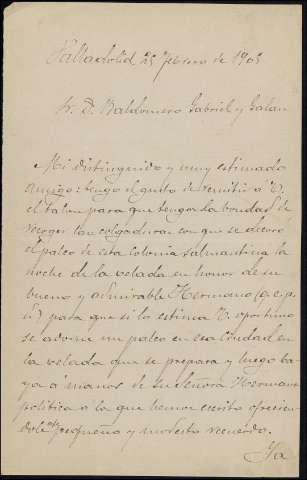 Valladolid 25 Febrero de 1905
Sr. D. Baldomero Gabriel y Galan
Mi distinguido y muy estimado
amigo: tengo el gusto de remitir a V.
el talon para que tenga la bondad de
recoger las colgaduras con que se decoró
el palco de esta Colonia Salmantina la
noche de la velada en honor de su
bueno y admirable Hermano (q. e. p.
d.) para que si lo estima V. oportuno
se adorne un palco en esa Ciudad en
la velada que se prepara y luego va-
ya á manos de su Señora Hermana
política á la que hemos escrito ofrecien-
dole este pequeño y modesto recuerdo.
Ya